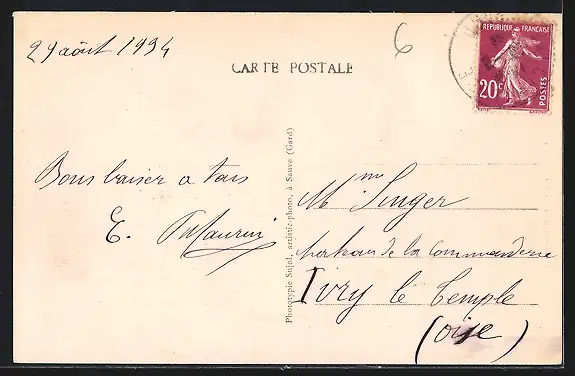 29 août 1934
6
CARTE POSTALE
REPUBLIQUE FRANÇAISE
20c
POSTES
Bons baiser a tous
E. Maurin
Phototypie Sujel, artistic-photo, à Sauve (Gard)
Mme Singer
de la commanderie
Ivry le Temple
(oise)